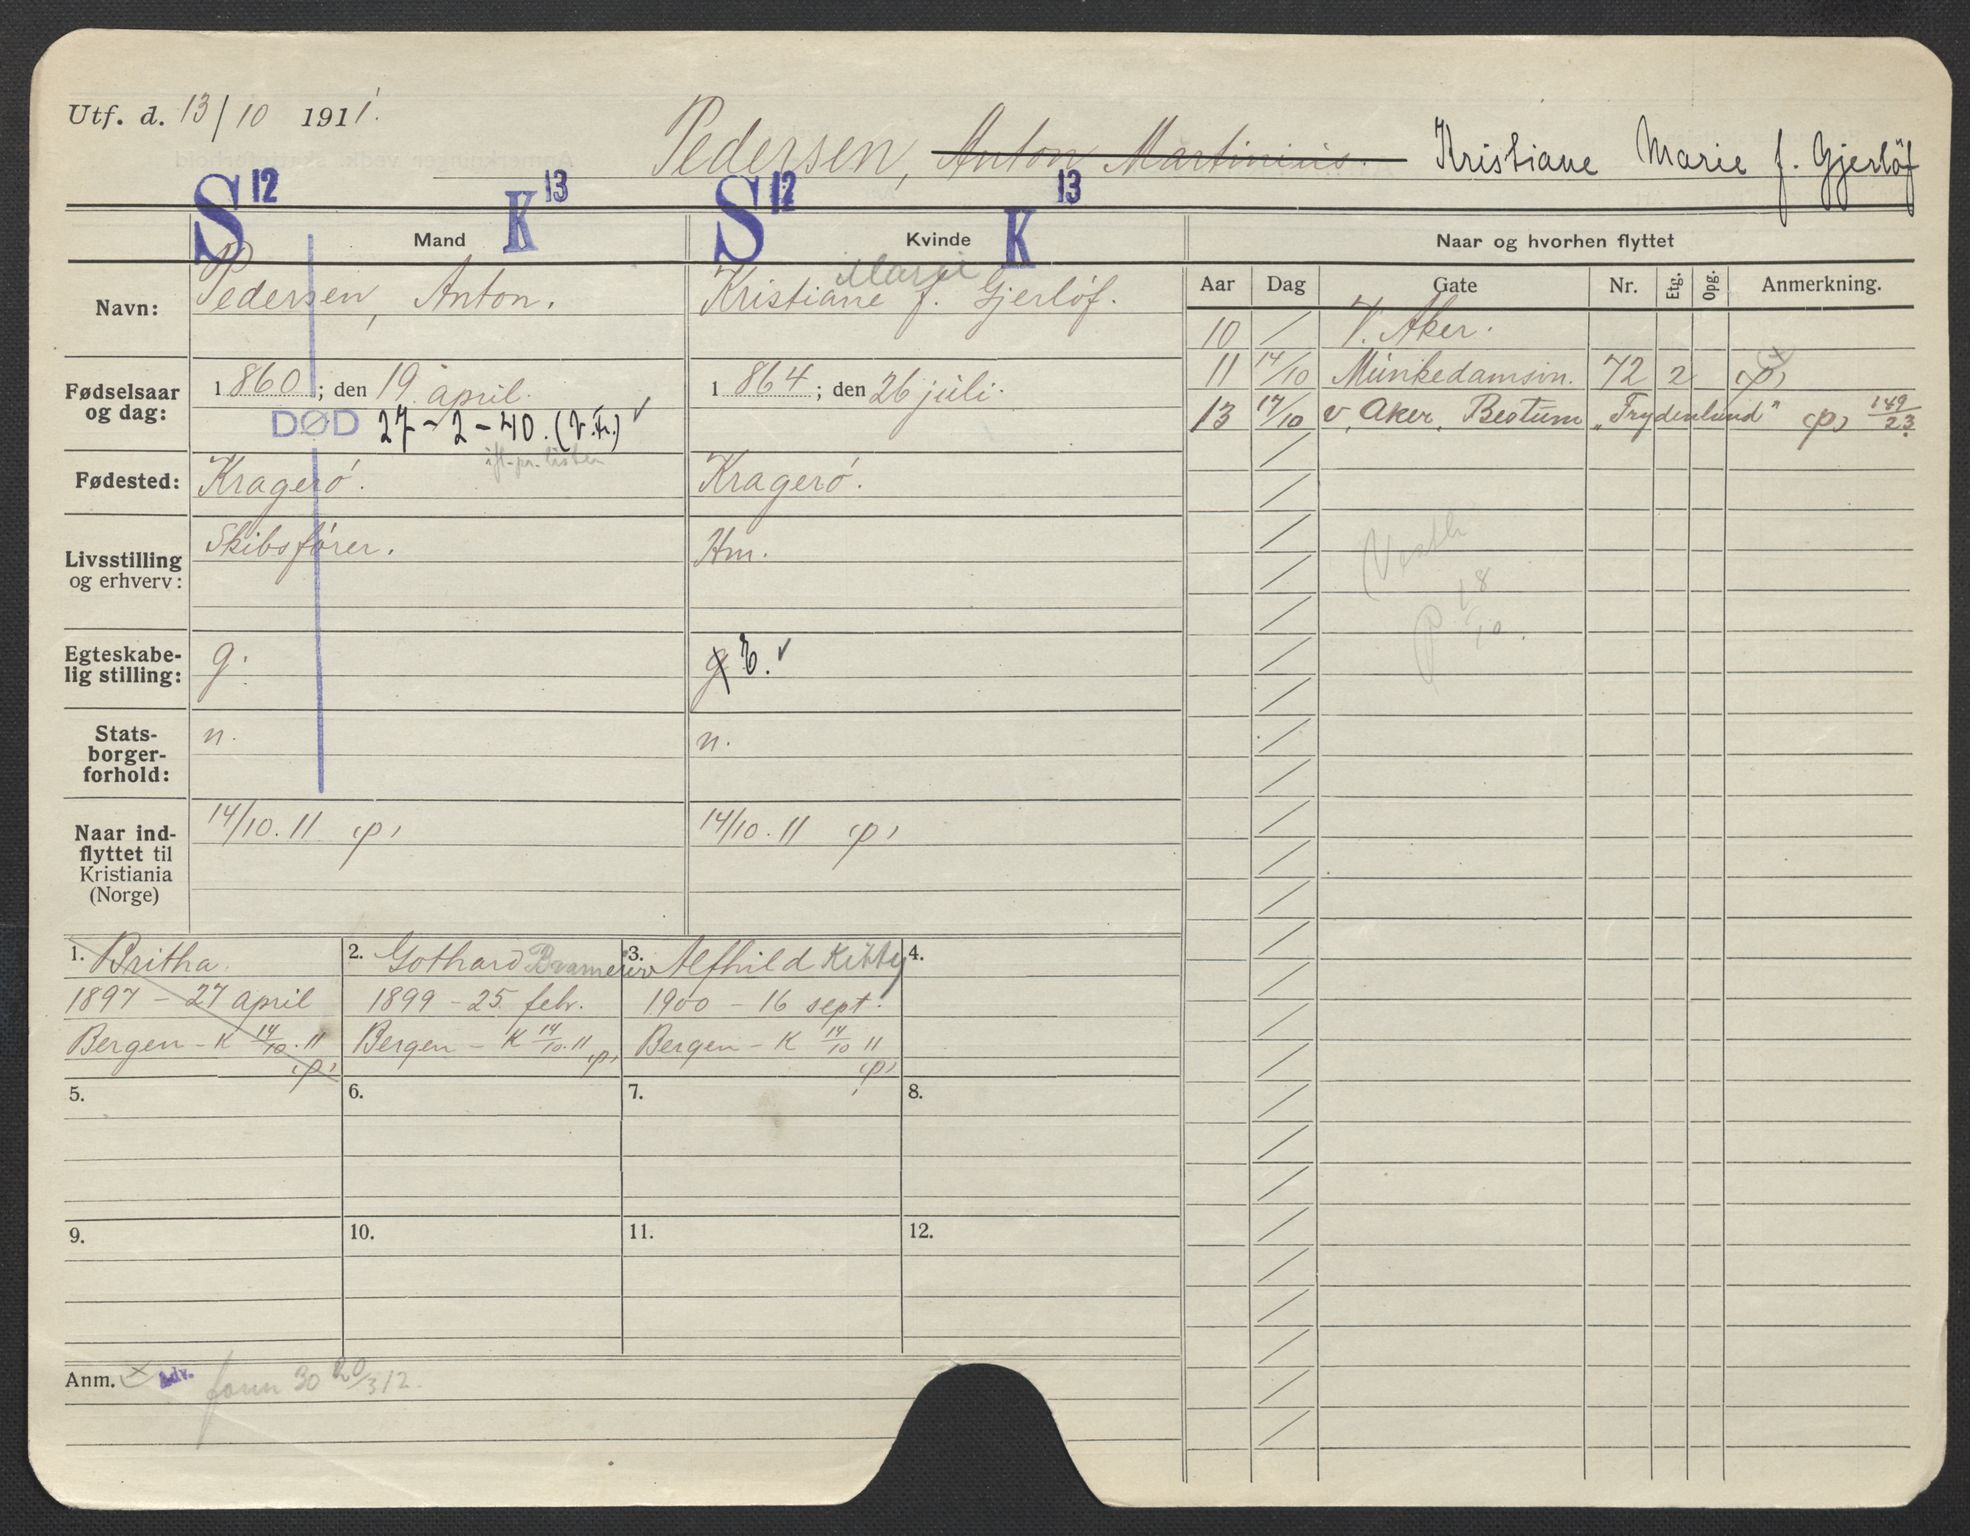 Utf. d. 13/10 1911.
Pedersen, Anton Martinius. Kristiane Marie f. Gjerløf
S 12 K 13 S 12 K 13
Mand Kvinde Naar og hvorhen flyttet
Navn: Pedersen, Anton. Kristiane Marie f. Gjerløf.
Fødselsaar og dag: 1860; den 19 april. 1864; den 26 juli.
DØD 27-2-40. (V.Fr.) ✓
Fødested: Kragerø. Kragerø.
Livsstilling og erhverv: Skibsfører. Hm.
Egteskabelig stilling: g. g E. ✓
Statsborgerforhold: n. n.
Naar indflyttet til Kristiania (Norge) 14/10.11 (p) 14/10.11 (p)
Aar Dag Gate Nr. Etg. Opg. Anmerkning.
10 / V. Aker.
11 14/10 Munkedamsvn. 72 2 (p)
13 17/10 V. Aker, Bestum "Frydenlund" (p) 149/23
18/10.
1. Britha.
1897 - 27 april
Bergen - K 14/10.11 (p)
2. Gothard
1899 - 25 febr.
Bergen - K 14/10.11 (p)
3. Alfhild Kitty
1900 - 16 sept.
Bergen - K 14/10 11 (p)
4.
5. 6. 7. 8.
9. 10. 11. 12.
Anm. x Adv.